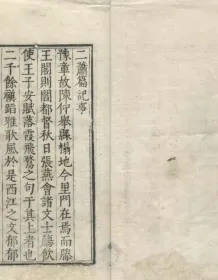 二蕭篇記事
豫章故陳仲舉縣榻地今里門在焉而滕
王閣則閻都督秋日張燕會諸文士觴飲
使王子安賦落霞飛鶩之句于其上者也
二千餘禩蹈雅歌風於是西江之文郁郁